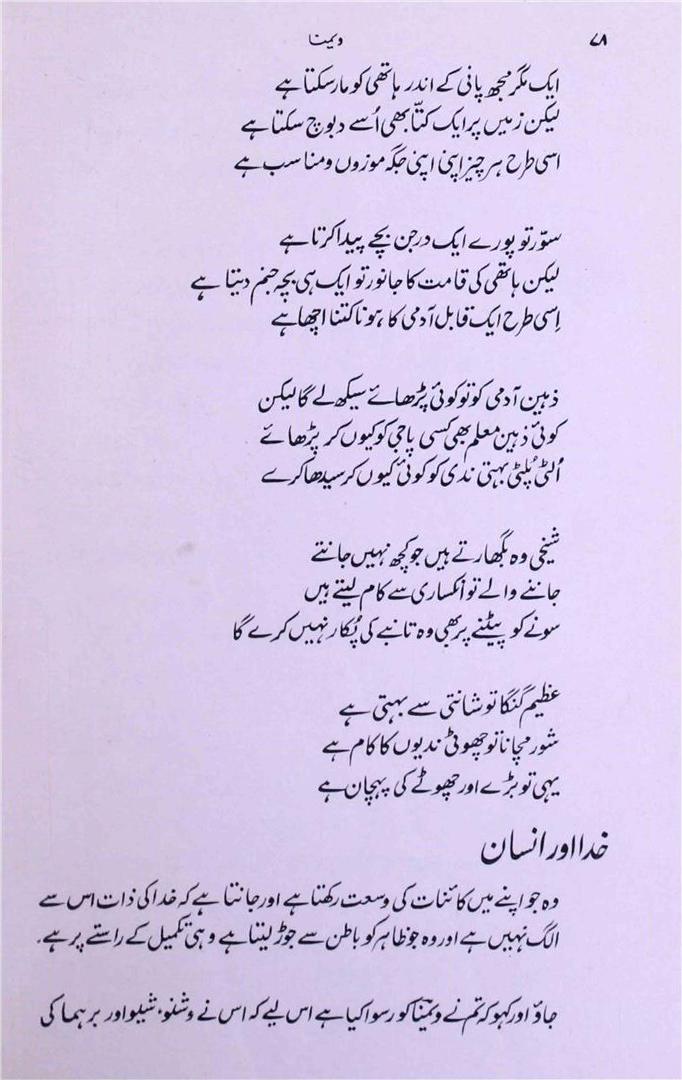 ۷۸
ویمنا
ایک مگرمچھ پانی کے اندر ہاتھی کو مار سکتا ہے
لیکن زمیں پر ایک کتّا بھی اُسے دبوچ سکتا ہے
اسی طرح ہر چیز اپنی اپنی جگہ موزوں و مناسب ہے
سوّر تو پورے ایک درجن بچے پیدا کرتا ہے
لیکن ہاتھی کی قامت کا جانور تو ایک ہی بچہ جنم دیتا ہے
اِسی طرح ایک قابل آدمی کا ہونا کتنا اچھا ہے
ذہین آدمی کو تو کوئی پڑھائے سیکھ لے گا لیکن
کوئی ذہین معلم بھی کسی پاجی کو کیوں کر پڑھائے
اُلٹی پُلٹی بہتی ندی کو کوئی کیوں کر سیدھا کرے
شیخی وہ بگھارتے ہیں جو کچھ نہیں جانتے
جاننے والے تو انکساری سے کام لیتے ہیں
سونے کو پیٹنے پر بھی وہ تانبے کی پُکار نہیں کرے گا
عظیم گنگا تو شانتی سے بہتی ہے
شور مچانا تو چھوٹی ندیوں کا کام ہے
یہی تو بڑے اور چھوٹے کی پہچان ہے
خدا اور انسان
وہ جو اپنے میں کائنات کی وسعت رکھتا ہے اور جانتا ہے کہ خدا کی ذات اس سے
الگ نہیں ہے اور وہ جو ظاہر کو باطن سے جوڑ لیتا ہے وہی تکمیل کے راستے پر ہے۔
جاؤ اور کہو کہ تم نے ویمنّا کو رسوا کیا ہے اس لیے کہ اس نے وشنو، شیو اور برہما کی